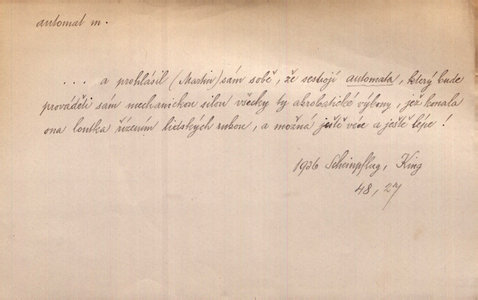 automat m.
... a prohlásil (Martin) sám sobě, že sestrojí automata, který bude
prováděti sám mechanickou silou všecky ty akrobatické výkony, jež konala
ona loutka řízením lidských rukou, a možná ještě více a ještě lépe!
1936 Scheinpflug, King
48, 27